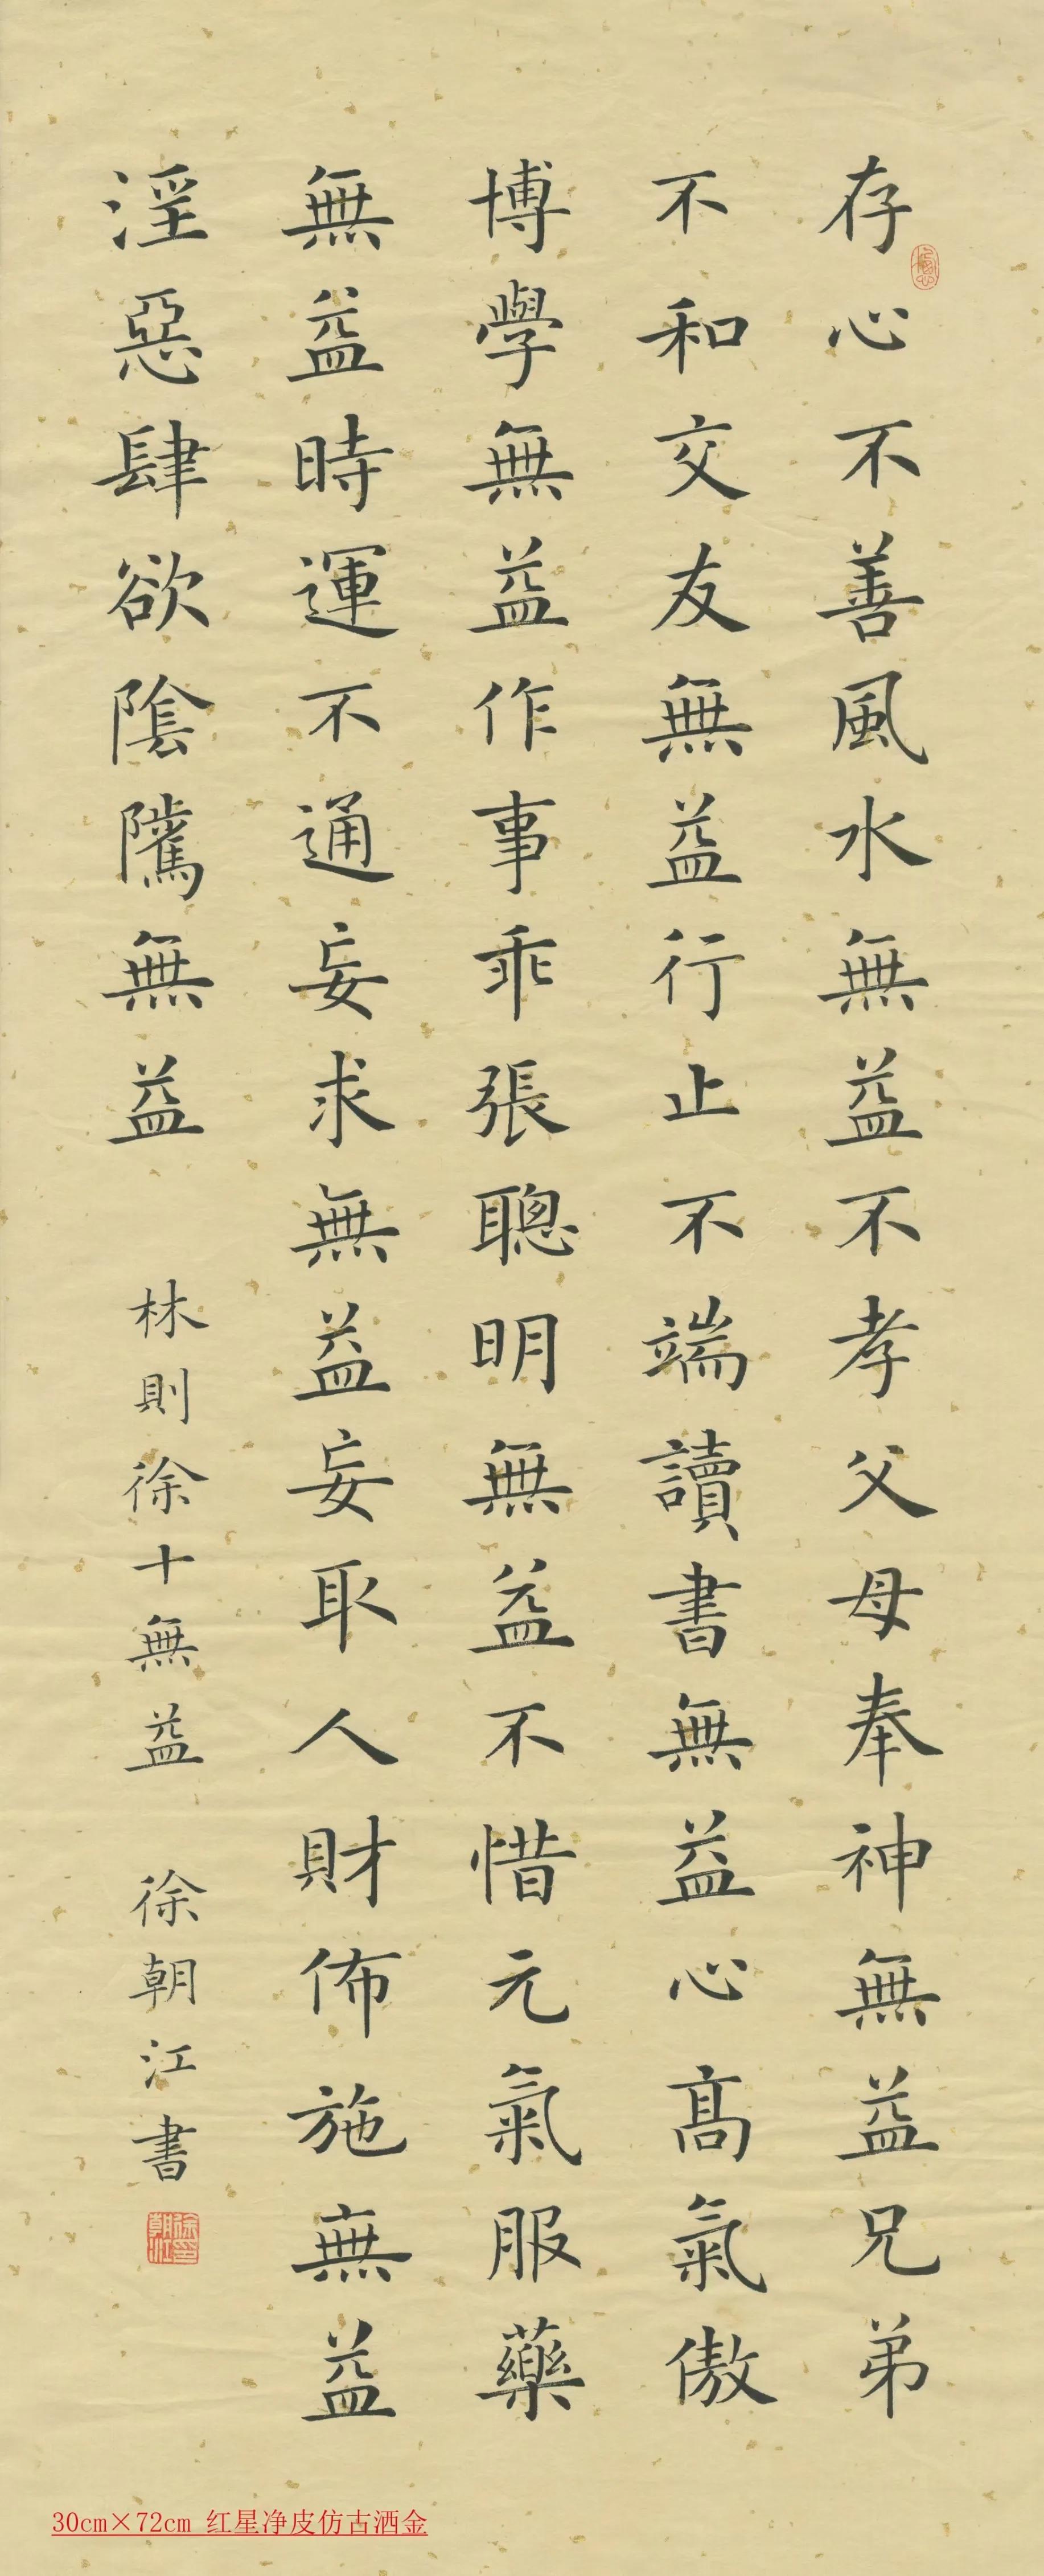 存心不善風水無益不孝父母奉神無益兄弟
不和交友無益行止不端讀書無益心高氣傲
博學無益作事乖張聰明無益不惜元氣服藥
無益時運不通妄求無益妄取人財佈施無益
淫惡肆欲陰騭無益
林則徐十無益 徐朝江書
徐印朝江
30cm×72cm 红星净皮仿古洒金